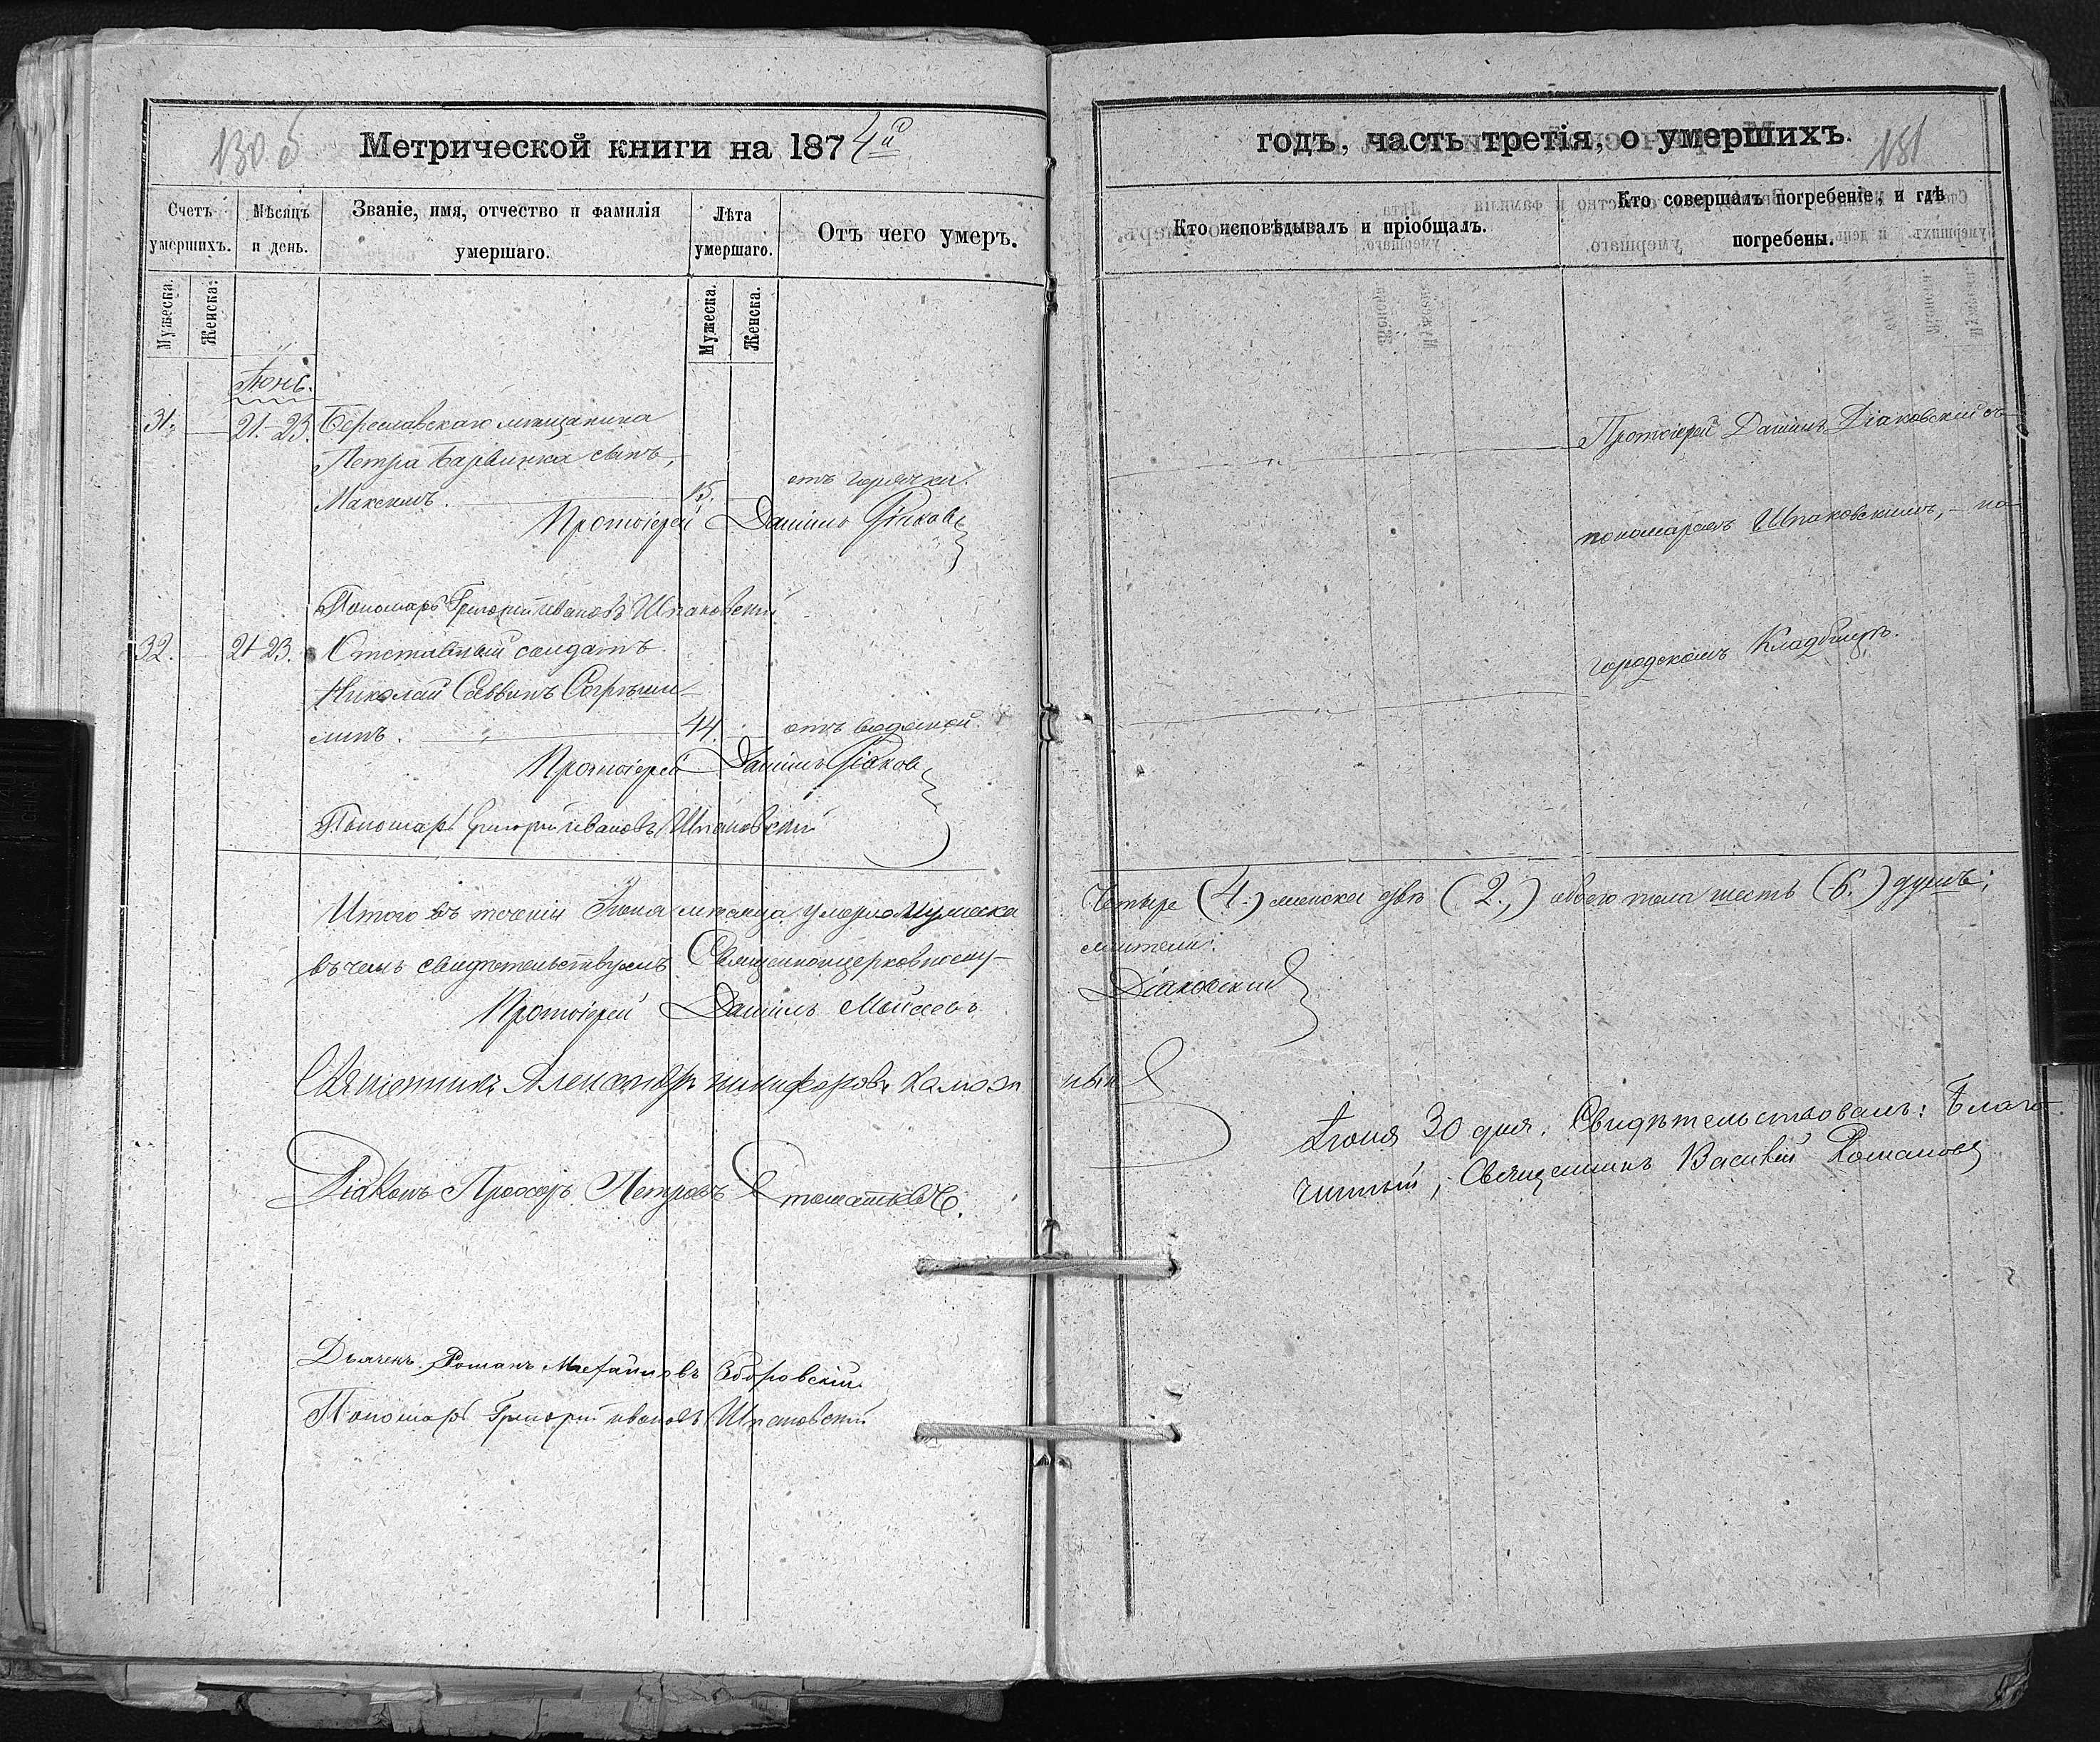 130 б
Метрической книги на 1874й
Счетъ умершихъ.
Мѣсяцъ и день.
Званіе, имя, отчество и фамилія умершаго.
Лѣта умершаго.
Отъ чего умеръ.
Мужеска.
Женска:
Мужеска.
Женска.
Іюнь.
31. 21.-23. Береславскаго мѣщанина
Петра Барвинка сынъ,
Максимъ. 15. отъ горячки.
Протоіерей Даніилъ
Пономарь Григорій Ивановъ Шпаковскій
32. 21-23. Отставный солдатъ
Николай Саввинъ
44. отъ водяной.
Протоіерей Даніилъ
Пономарь Григорій Ивановъ Шпаковскій
Итого въ теченіи Іюня мѣсяца умерло мужеска
въ чемъ свидѣтельствуемъ Священноцерковнослу-
Протоіерей Даніилъ Моисеевъ
Священникъ Александръ Никифоровъ
Діаконъ Прохоръ Петровъ
Дьячекъ Романъ Зборовскій
Пономарь Григорій Ивановъ Шпаковскій
годъ, часть третія, о умершихъ.
131
Кто исповѣдывалъ и пріобщалъ.
Кто совершалъ погребеніе, и гдѣ погребены.
Протоіерей Даніилъ Діаковскій съ
пономаремъ Шпаковскимъ, - на
городскомъ Кладбищѣ.
Четыре (4.) женска двѣ (2.,) обоего пола шесть (6.) душъ;
жители:
Діаковскій
Іюня 30 дня. Свидѣтельствовалъ: Благо-
чинный, Священникъ Василій Романовъ